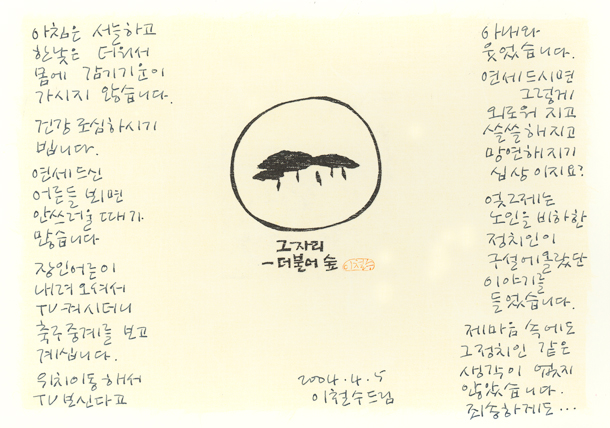 아침은 서늘하고
한낮은 더워서
몸에 감기기운이
가시지 않습니다.
건강 조심하시기
빕니다.
연세드신
어른들 뵈면
안쓰러울 때가
많습니다
장인어른이
내려오셔서
TV 켜시더니
축구중계를 보고
계십니다.
위치이동해서
TV 보신다고
그 자리
- 더불어 숲
2004.4.5
이철수드림
아내와
웃었습니다.
연세드시면
그렇게
외로워지고
쓸쓸해지고
망연해지기
십상이지요?
엊그제는
노인을 비하한
정치인이
구설에 올랐단
이야기를
들었습니다.
제마음 속에도
그정치인 같은
생각이 없지
않았습니다.
죄송하게도...